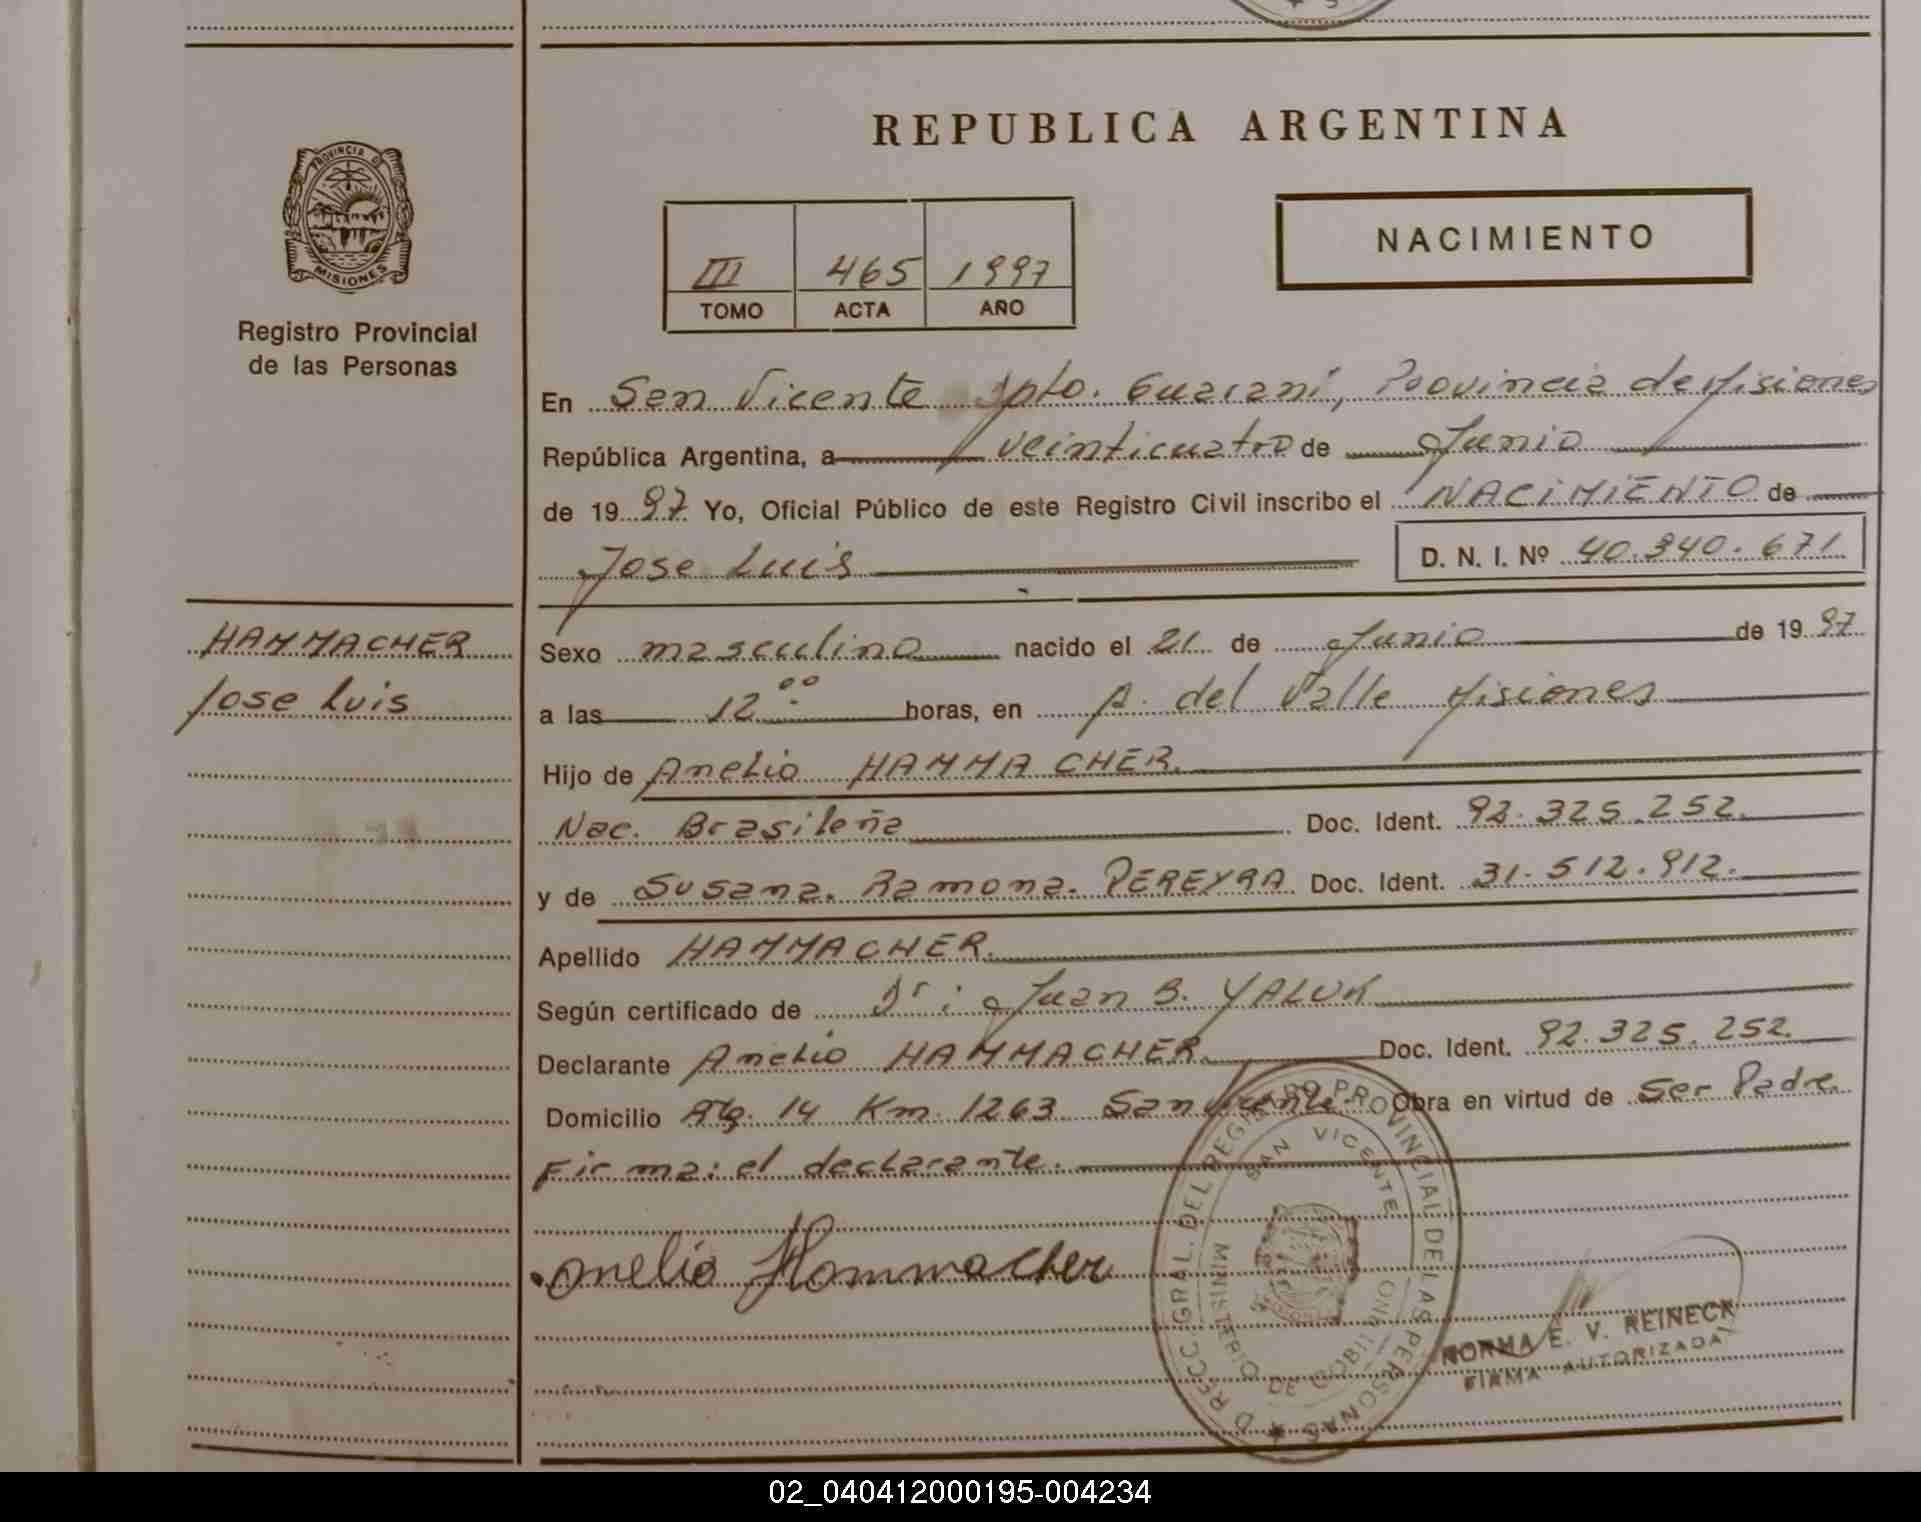 REPUBLICA ARGENTINA
PROVINCIA D
MISIONES
Registro Provincial
de las Personas
III 465 1997
TOMO ACTA AÑO
NACIMIENTO
En San Vicente Dpto. Guarani, Provincia de Misiones
República Argentina, a veinticuatro de Junio
de 1997 Yo, Oficial Público de este Registro Civil inscribo el NACIMIENTO de
Jose Luis D. N. I. Nº 40.340.671
HAMMACHER
Jose Luis
Sexo masculino nacido el 21 de Junio de 1997
a las 12:00 horas, en A. del Valle Misiones
Hijo de Anelio HAMMACHER.
Nac. Brasileña Doc. Ident. 92.325.252.
y de Susana. Ramona. PEREYRA Doc. Ident. 31.512.912.
Apellido HAMMACHER.
Según certificado de Dr: Juan B. YALUK
Declarante Anelio HAMMACHER Doc. Ident. 92.325.252.
Domicilio Rta. 14 Km. 1263 San Vicente. Obra en virtud de Ser Padre.
Firma: el declarante.
Anelio Hammacher
DIRECC. GRAL. DEL REGISTRO PROVINCIAL DE LAS PERSONAS
SAN VICENTE
MINISTERIO DE GOBIERNO
NORMA E. V. REINECK
FIRMA AUTORIZADA
02_040412000195-004234